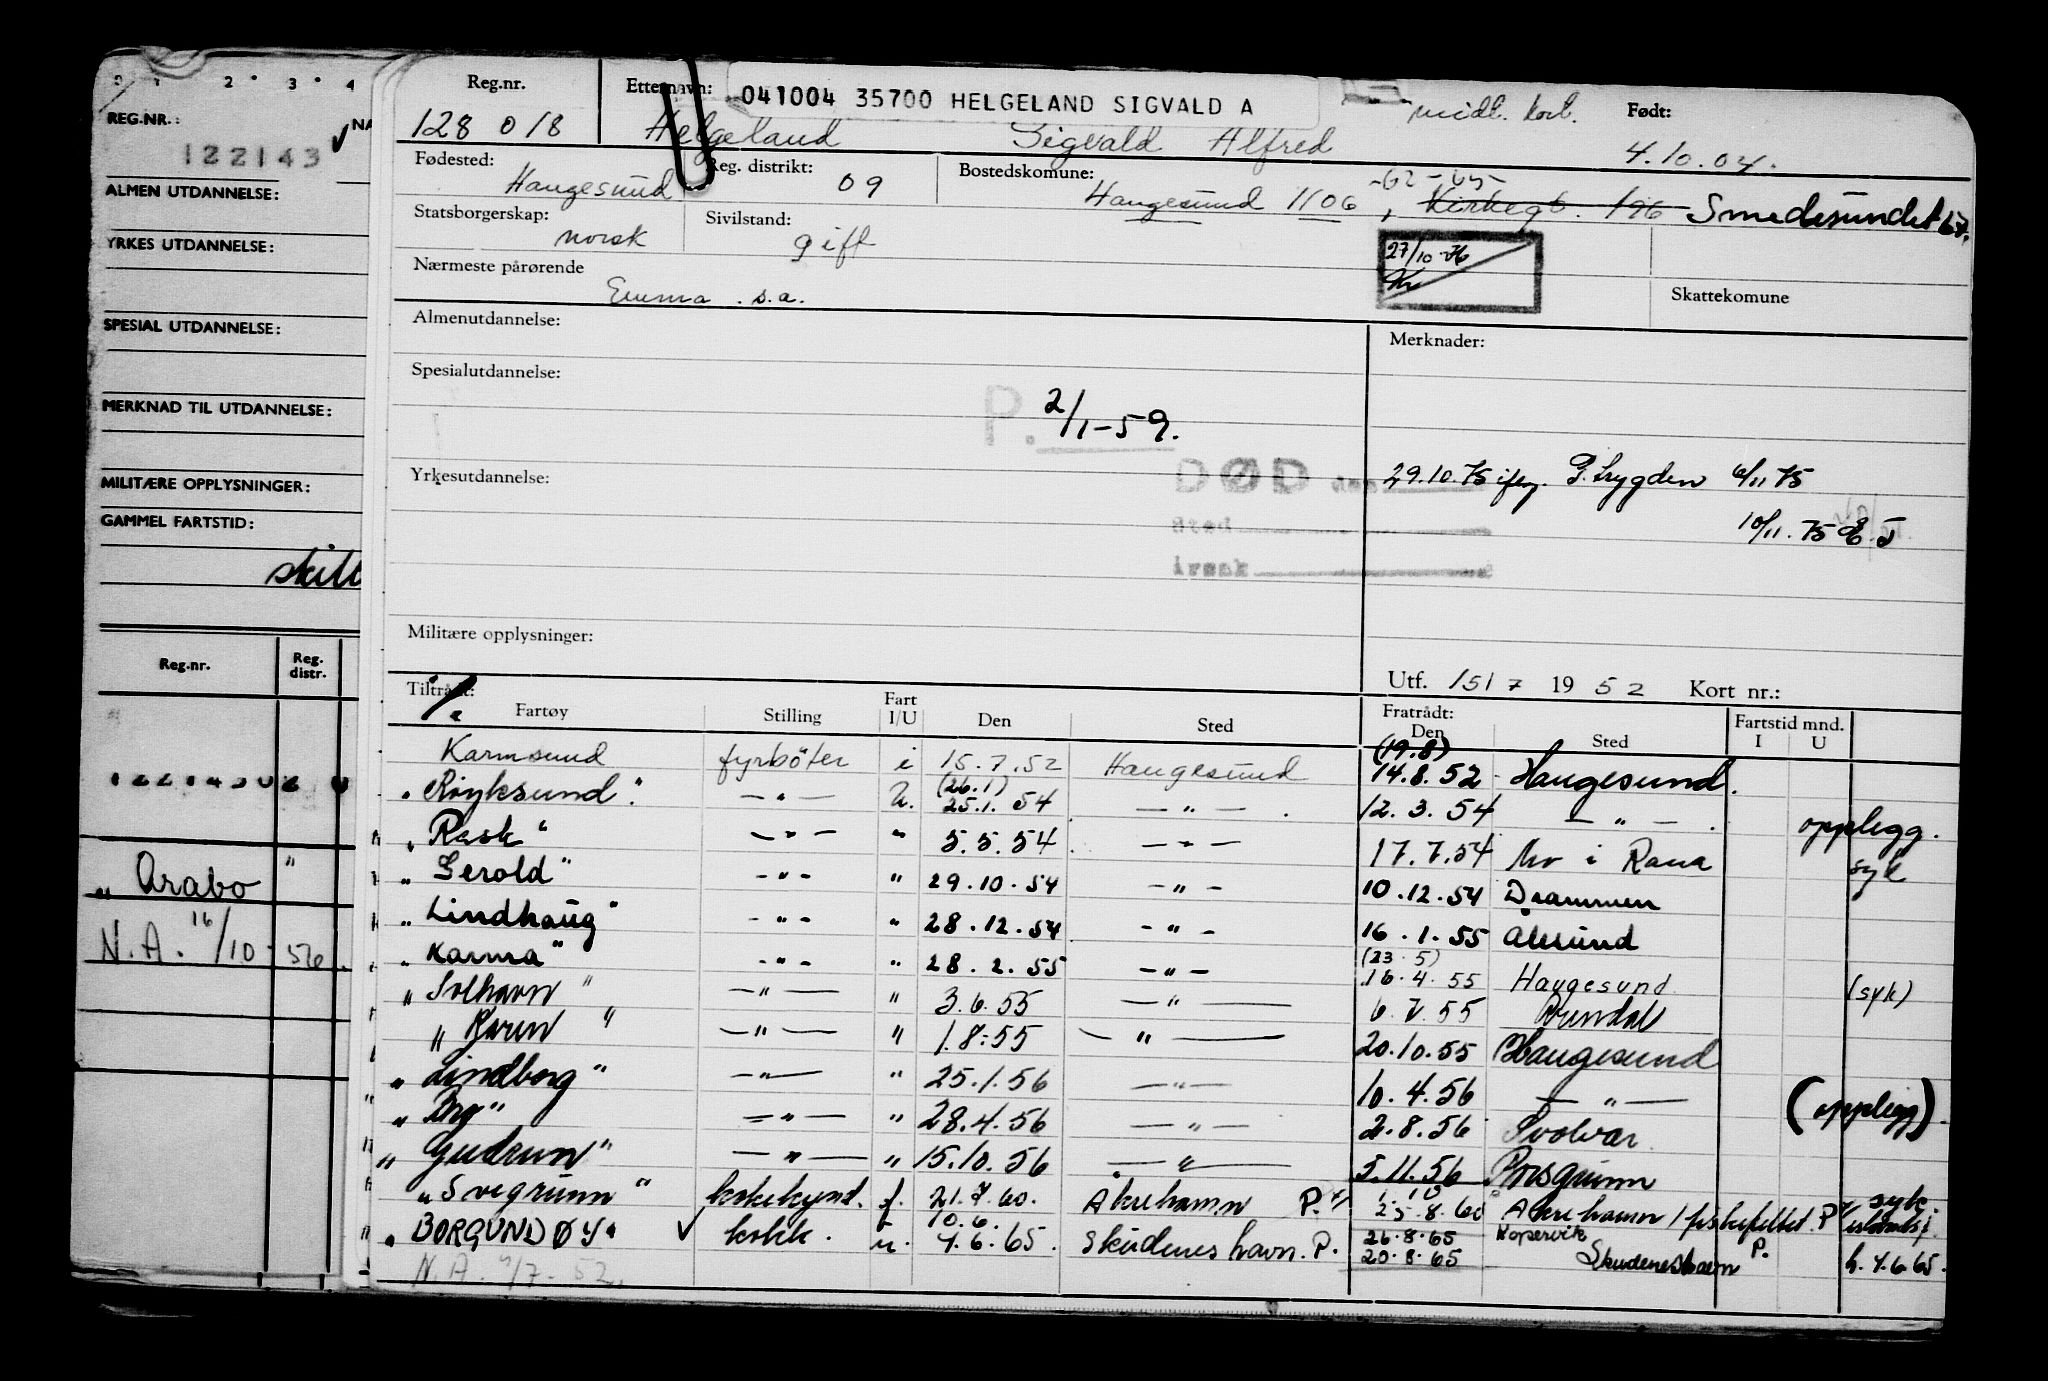 0 1 2 3 4
REG.NR.:
NA
122143
ALMEN UTDANNELSE:
YRKES UTDANNELSE:
SPESIAL UTDANNELSE:
MERKNAD TIL UTDANNELSE:
MILITÆRE OPPLYSNINGER:
GAMMEL FARTSTID:
Reg.nr. Reg. distr.
„ Arabo "
N.A. 16/10-56.
Reg.nr. Etternavn: 041004 35700 HELGELAND SIGVALD A midl. kort. Født:
128 018 Helgeland Sigvald Alfred 4.10.04.
Fødested: Haugesund Reg. distrikt: 09 Bostedskomune: Haugesund 1106, Kirkegt. 196 Smedesundet
-62-65-
Statsborgerskap: norsk Sivilstand: gift
27/10
Nærmeste pårørende Emma s.a. Skattekomune
Almenutdannelse: Merknader:
Spesialutdannelse:
P. 2/1-59.
Yrkesutdannelse: DØD den 29.10.75 iflg. P. trygden 6/11 75
Sted 10/11.75
Årsak
Militære opplysninger:
Utf. 15/7 1952 Kort nr.:
Tiltrådt: Fratrådt: Fartstid mnd.
Fartøy Stilling Fart I/U Den Sted Den Sted I U
Karmsund fyrbøter i 15.7.52 Haugesund (19.8) 14.8.52 Haugesund.
"Røyksund". —"— U. (26.1) 25.1.54 —"—. 12.3.54 —"—. opplegg.
"Rask" —"— " 5.5.54 —"— 17.7.54 Mo i Rana syk
"Gerold" —"— " 29.10.54 —"— 10.12.54 Drammen
"Lindhaug" —"— " 28.12.54 —"— 16.1.55 Ålesund
"Karma" —"— " 28.2.55 —"— (23.5) 16.4.55 Haugesund (syk)
"Solhavn" —"— " 3.6.55 —"— 6.7.55 Arendal
"Karen" —"— " 1.8.55 —"— 20.10.55 Haugesund
"Lindborg" —"— " 25.1.56 —"— 10.4.56 —"— (opplegg).
"Brg" —"— " 28.4.56 —"— 2.8.56 Svolvær.
"Gudrun" —"— " 15.10.56 —"— 5.11.56 Porsgrunn syk
"Svegrunn" kokekynd. f. 21.7.60. Åkrehamn P. 25.8.60 Åkrehamn / fiskefeltet P
"BORGUNDØY" kokk. u. 10.6. 4.6.65. Skudeneshavn. P. 26.8.65 Kopervik
20.8.65 Skudeneshavn P. h. 4.6.65.
N.A. 9/7-52.